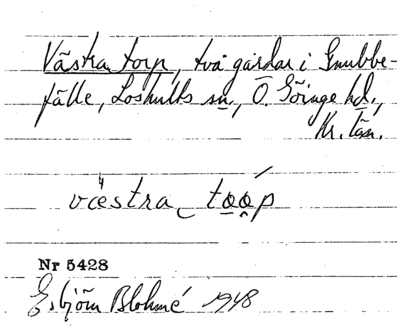 Västra torp, två gårdar i Gnubbe-
fälle, Loshults sn, Ö. Göinge hd.,
Kr. län.
væstra tǫǫ́p
Nr 5428
Esbjörn Blohmé 1948